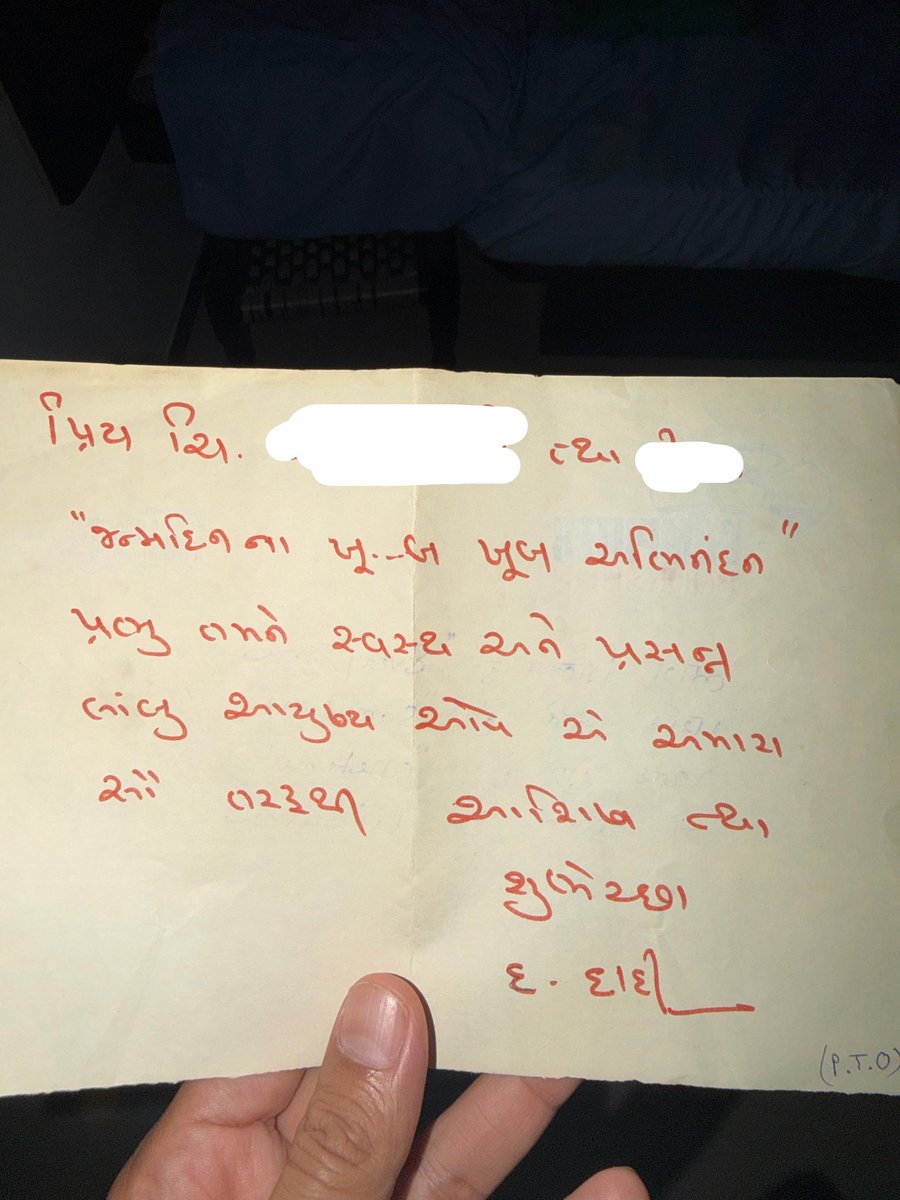 પ્રિય ચિ. ત્થા
"જન્મદિનના ખૂ..બ ખૂબ અભિનંદન"
પ્રભુ તમને સ્વસ્થ અને પ્રસન્ન
લાંબુ આયુષ્ય આપે એ અમારા
સૌ તરફથી આશિષ ત્થા
શુભેચ્છા
દ. દાદી
(P.T.O)